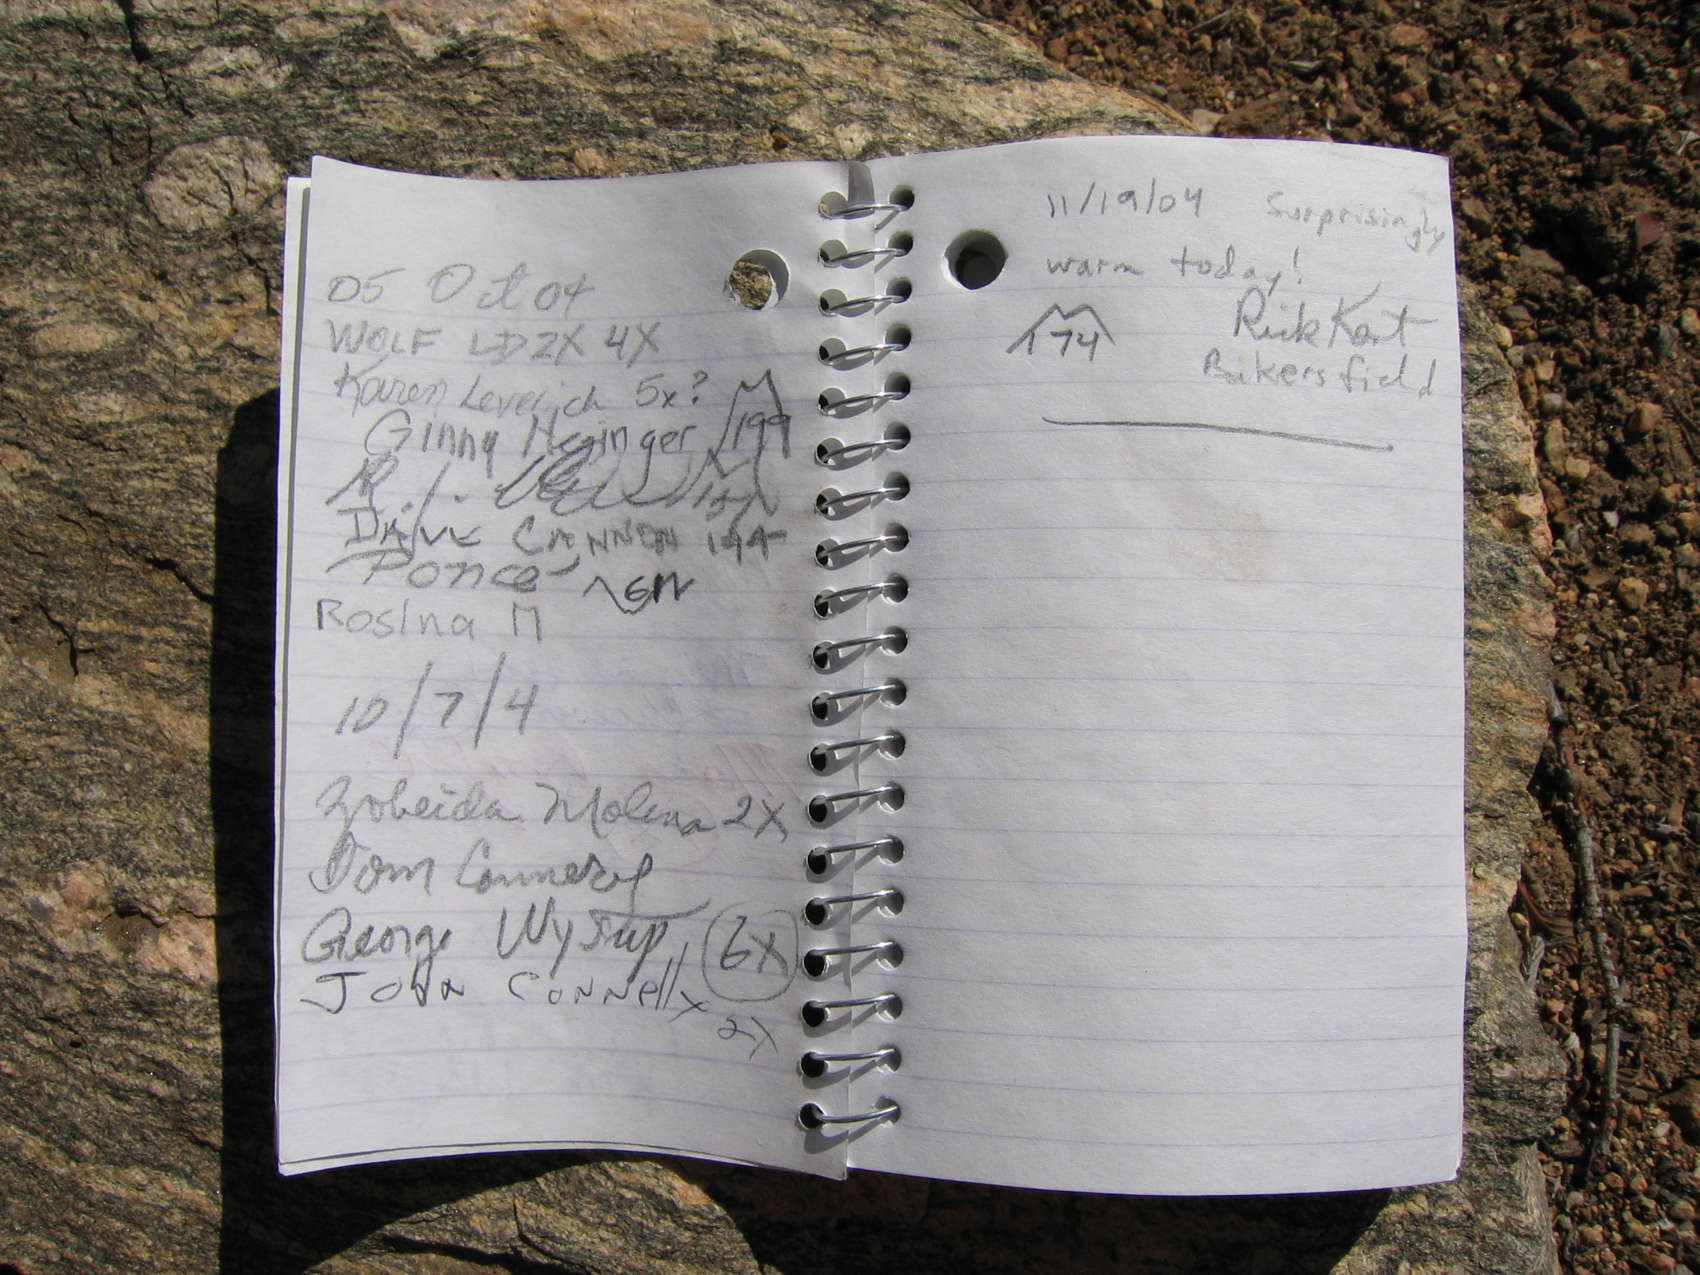 05 Oct 04
WOLF LD2X 4X
Karen Leverich 5x?
Ginny Heringer 199
DAVE CANNON 144
Ponce GN
Rosina M
10/7/4
Zobeida Molina 2X
Tom Connery
George Wysup 6X
JOHN CONNELLY
2X
11/19/04 Surprisingly
warm today!
174 Rick Kent
Bakersfield